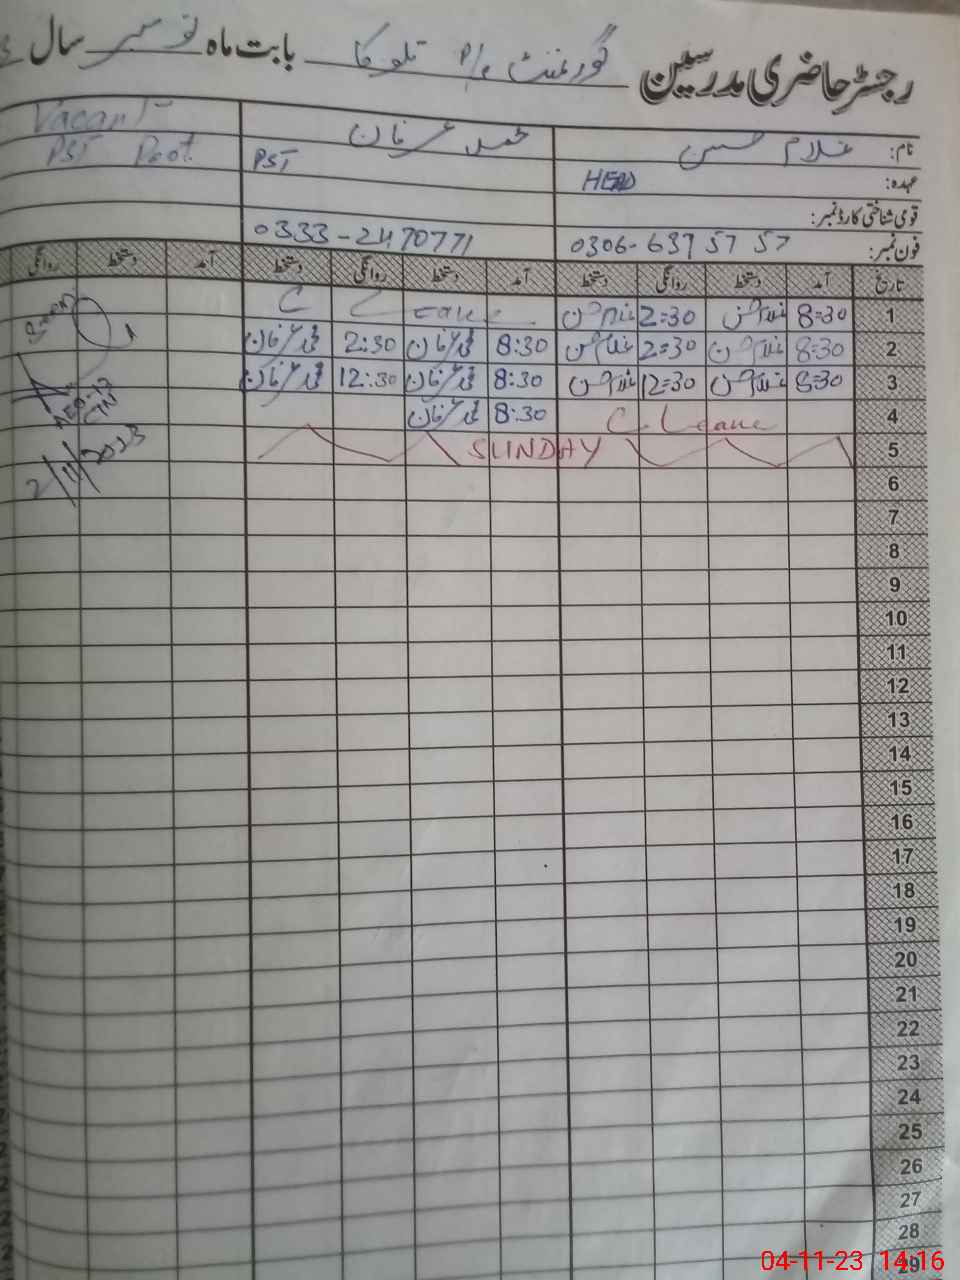 رجسٹر حاضری مدرسین گورنمنٹ P/S تلوکا بابت ماہ نومبر سال
نام: غلام حسین محمد عرفان Vacant
عہدہ: HEAD PST PST Post
قومی شناختی کارڈ نمبر:
فون نمبر: 0306-639 57 57 0333-2470771
تاریخ آمد دستخط روانگی دستخط آمد دستخط روانگی دستخط آمد دستخط روانگی
1 8=30 غلام حسین 2=30 غلام حسین C Leave
2 8=30 غلام حسین 2=30 غلام حسین 8:30 محمد عرفان 2:30 محمد عرفان
3 8=30 غلام حسین 12=30 غلام حسین 8:30 محمد عرفان 12:30 محمد عرفان
4 C Leave 8:30 محمد عرفان
5 SUNDAY
2/11/2023
6
7
8
9
10
11
12
13
14
15
16
17
18
19
20
21
22
23
24
25
26
27
28
29
04-11-23 14:16